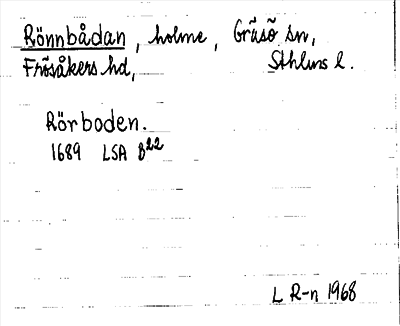 Rönnbådan, holme, Gräsö sn,
Frösåkers hd, Sthlms l.
Rörboden.
1689 LSA B22
L R-n 1968